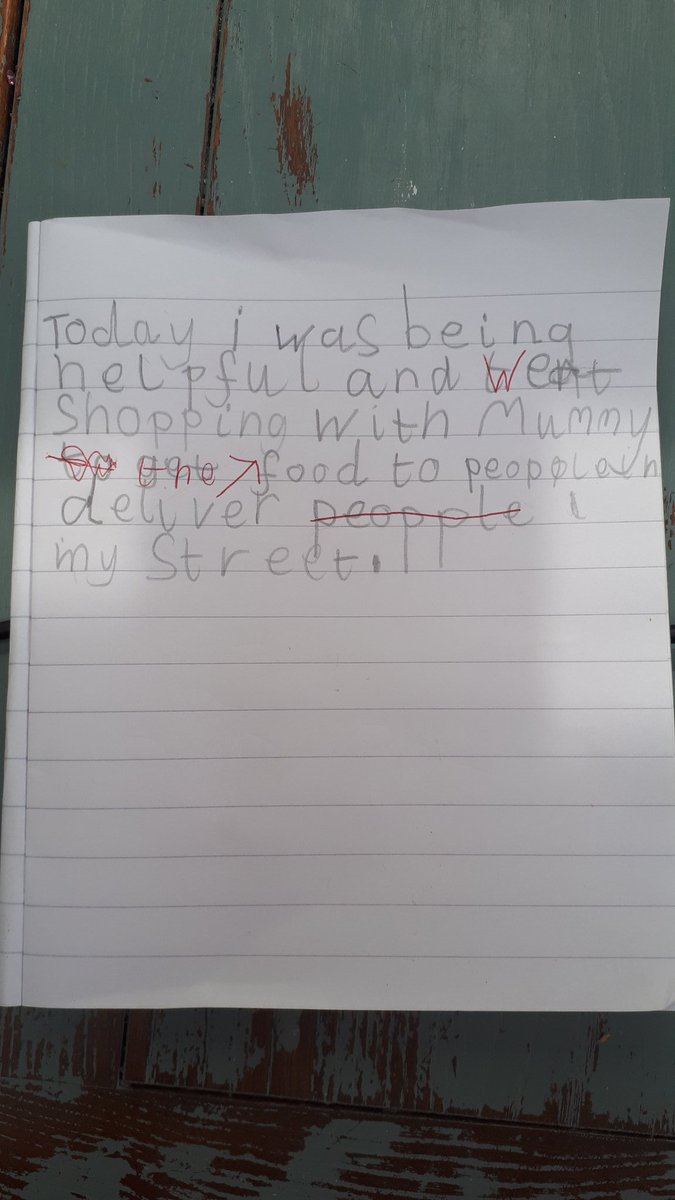 Today i was being
helpful and went
Shopping with Mummy
the food to people in
deliver peopple
my Street.